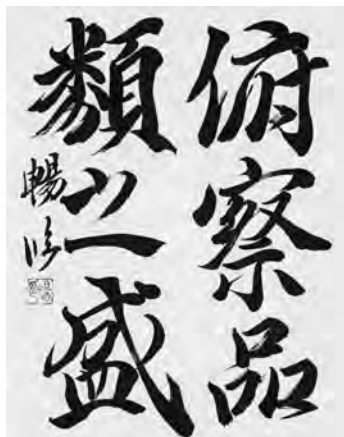 俯察品
類之盛
暢修